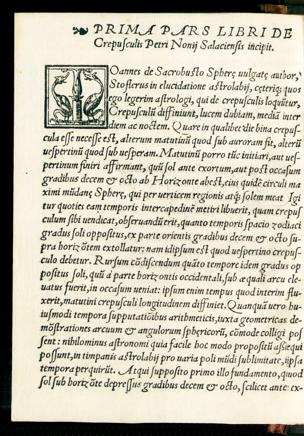 PRIMA PARS LIBRI DE
Crepusculis Petri Nonij Salaciensis incipit.
IOannes de Sacrobusto Spheræ uulgatę author,
Stoflerus in elucidatione astrolabij, cęteriq; quos
ego legerim astrologi, qui de crepusculis loquũtur,
Crepusculũ diffiniunt, lucem dubiam, mediã inter
diem ac noctem. Quare in qualibet die bina crepus-
cula esse necesse est, alterum matutinũ quod sub auroram fit, alterũ
uespertinũ quod sub uesperam. Matutinũ porro tũc initiari, aut ues-
pertinum finiri affirmant, quũ sol ante exortum, aut post occasum
gradibus decem & octo ab Horizonte abest, eius quidẽ circuli ma
ximi mũdanę Spherę, qui per uerticem regionis atq; solem meat. Igi
tur quoties eam temporis intercapedinẽ metiri libuerit, quam crepus
culum sibi uendicat, obseruandũ erit, quanto temporis spacio zodiaci
gradus soli oppositus, ex parte orientis gradibus decem & octo su-
pra horizõtem extollatur: nam id ipsum est quod uespertino crepus-
culo debetur. Rursum cõdiscendum quãto tempore idem gradus op
positus soli, quũ à parte horizontis occidentali, sub aquali arcu ele-
uatus fuerit, in occasum ueniat: ipsum enim tempus quod interim flu-
xerit, matutini crepusculi longitudinem diffiniet. Quanquã uero hu-
iusmodi tempora supputatiõibus arithmeticis, iuxta geometricas de-
mõstrationes arcuum & angulorum sphęricorũ, cõmode colligi pos
sent: nihilominus astronomi quia facile hoc modo propositũ assequi
possunt, in timpanis astrolabij pro uaria poli mũdi sublimitate, ipsa
tempora perquirũt. Atqui supposito primo illo fundamento, quod
sol sub horizõte depressus gradibus decem & octo, scilicet ante ex-